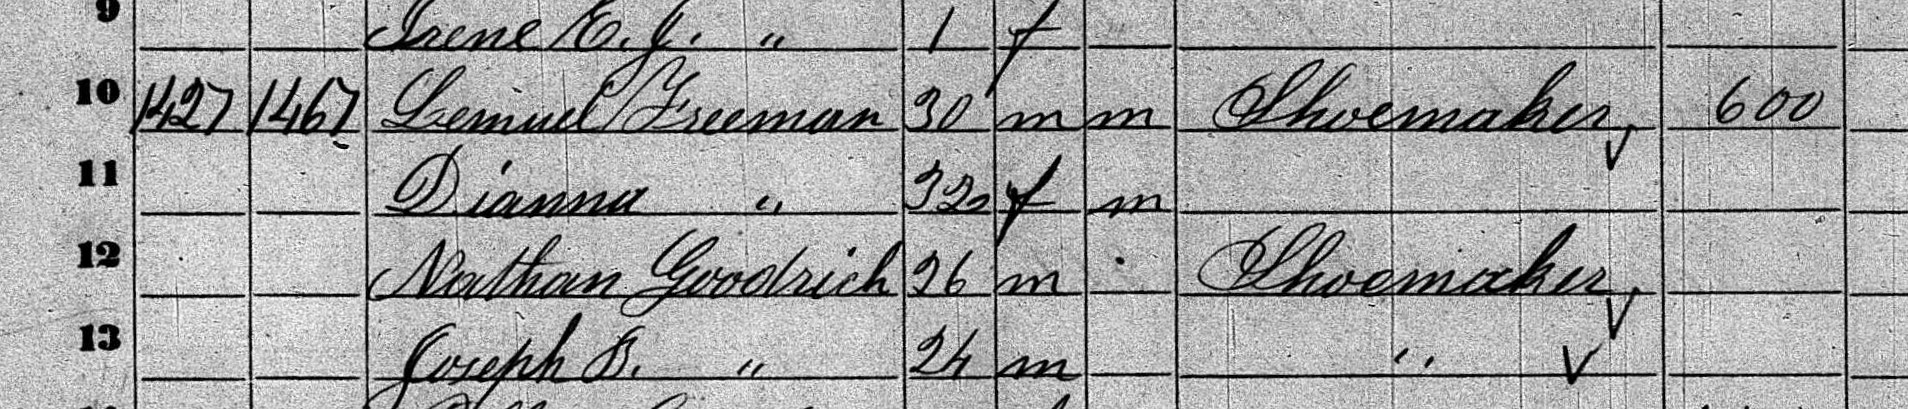 9 Irene E. J. " 1 f
10 1427 1467 Lemuel Freeman 30 m m Shoemaker 600
11 Dianna " 32 f m
12 Nathan Goodrich 36 m Shoemaker
13 Joseph B. " 24 m "